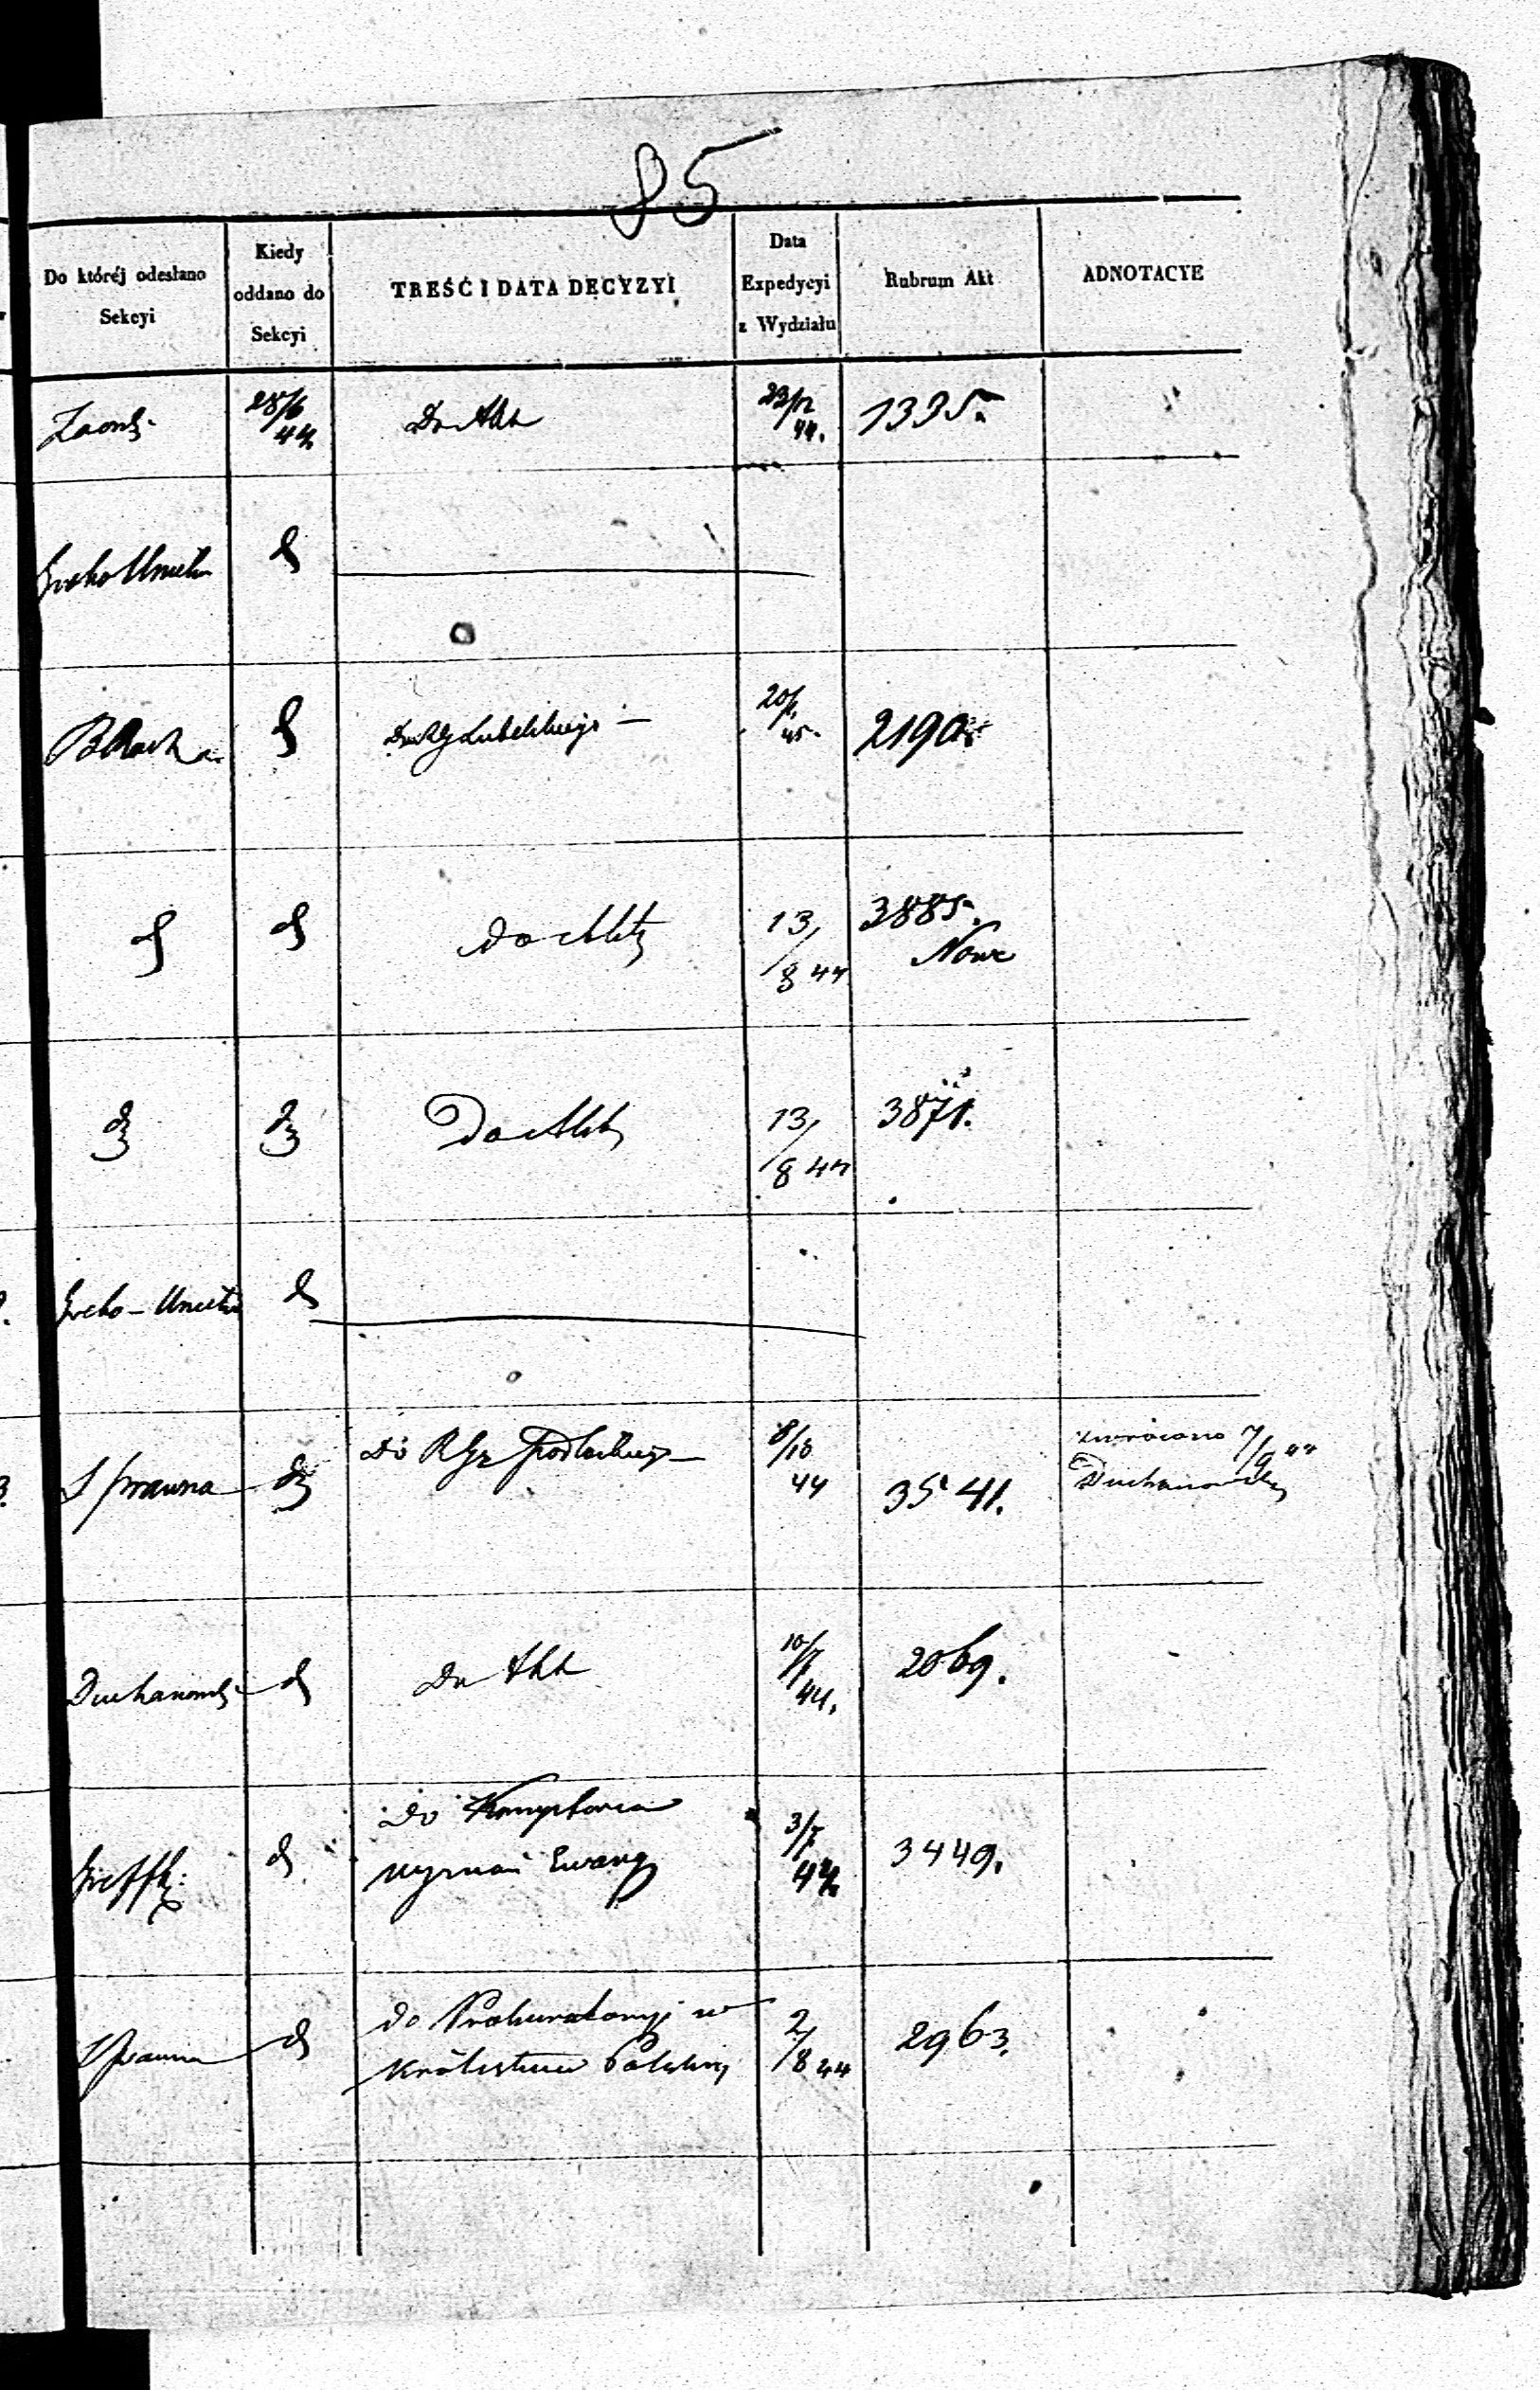 85
Do któréj odesłano
Sekcyi
Kiedy
oddano do
Sekcyi
TREŚĆ I DATA DECYZYI
Data
Expedycyi
z Wydziału
Rubrum Akt
ADNOTACYE
28/6
44
Do Akt
23/12
44.
1395.
Greko Unicka
20/1
45.
2190.
do Akt
13/
8 44
3885.
Nowe
Do Akt
13/
8 44
3871.
Greko-Unicka
S prawna
Do RGz Podlaskiego
8/10
44
3541.
zwrócono 7/9 44
Duchanowski
Duchanowski
Do Akt
10/7
44.
2069.
do
wyznań Ewang
3/7
44
3449.
S prawna
do Prokuratoryi w
Królestwie Polskim
2/
8 44
2963.